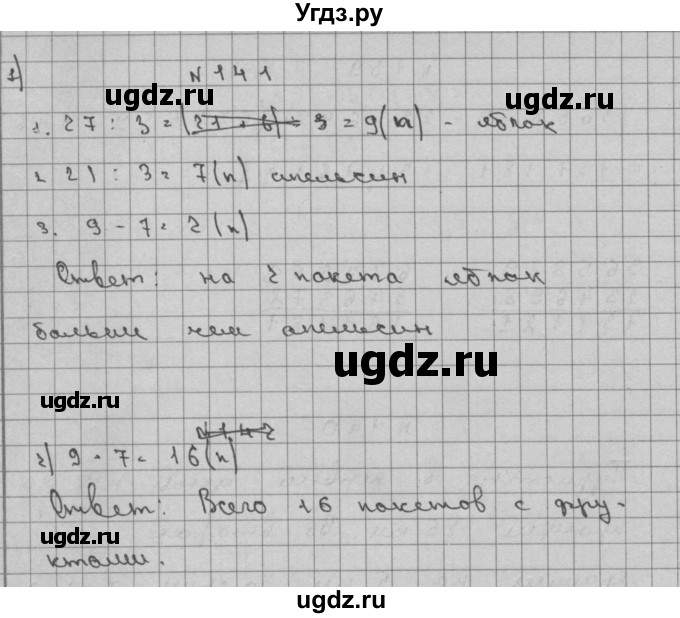 Угдз.ру
1) N 141
ugdz.ru ugdz.ru
1. 27 : 3 = (21 + 6) : 3 = 9 (п) - яблок
2. 21 : 3 = 7 (п) апельсин
3. 9 - 7 = 2 (п)
Ответ: на 2 пакета яблок
больше чем апельсин
ugdz.ru
ugdz.ru
N 142
2) 9 + 7 = 16 (п)
Ответ: Всего 16 пакетов с фру-
ugdz.ru ugdz.ru
ктами.
ugdz.ru